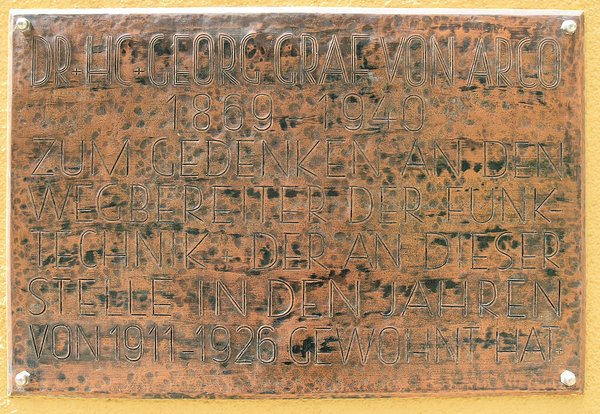 DR + HC + GEORG GRAF VON ARCO
1869 1940
ZUM GEDENKEN AN DEN
WEGBEREITER DER FUNK-
TECHNIK + DER AN DIESER
STELLE IN DEN JAHREN
VON 1911-1926 GEWOHNT HAT +